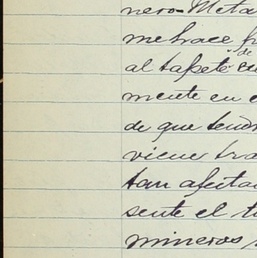 nero-Meta
me hace fr
de
al tapete en
mente en e
de que tend
viene tra
tan afecta
sente el t
mineros